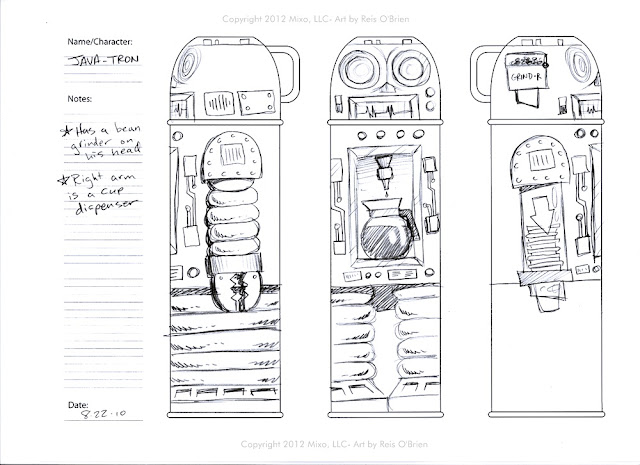 Copyright 2012 Mixo, LLC- Art by Reis O'Brien
Name/Character:
JAVA-TRON
Notes:
☆ Has a bean
grinder on
his head
☆ Right arm
is a cup
dispenser
Date:
8.22.10
GRIND-R
Copyright 2012 Mixo, LLC- Art by Reis O'Brien